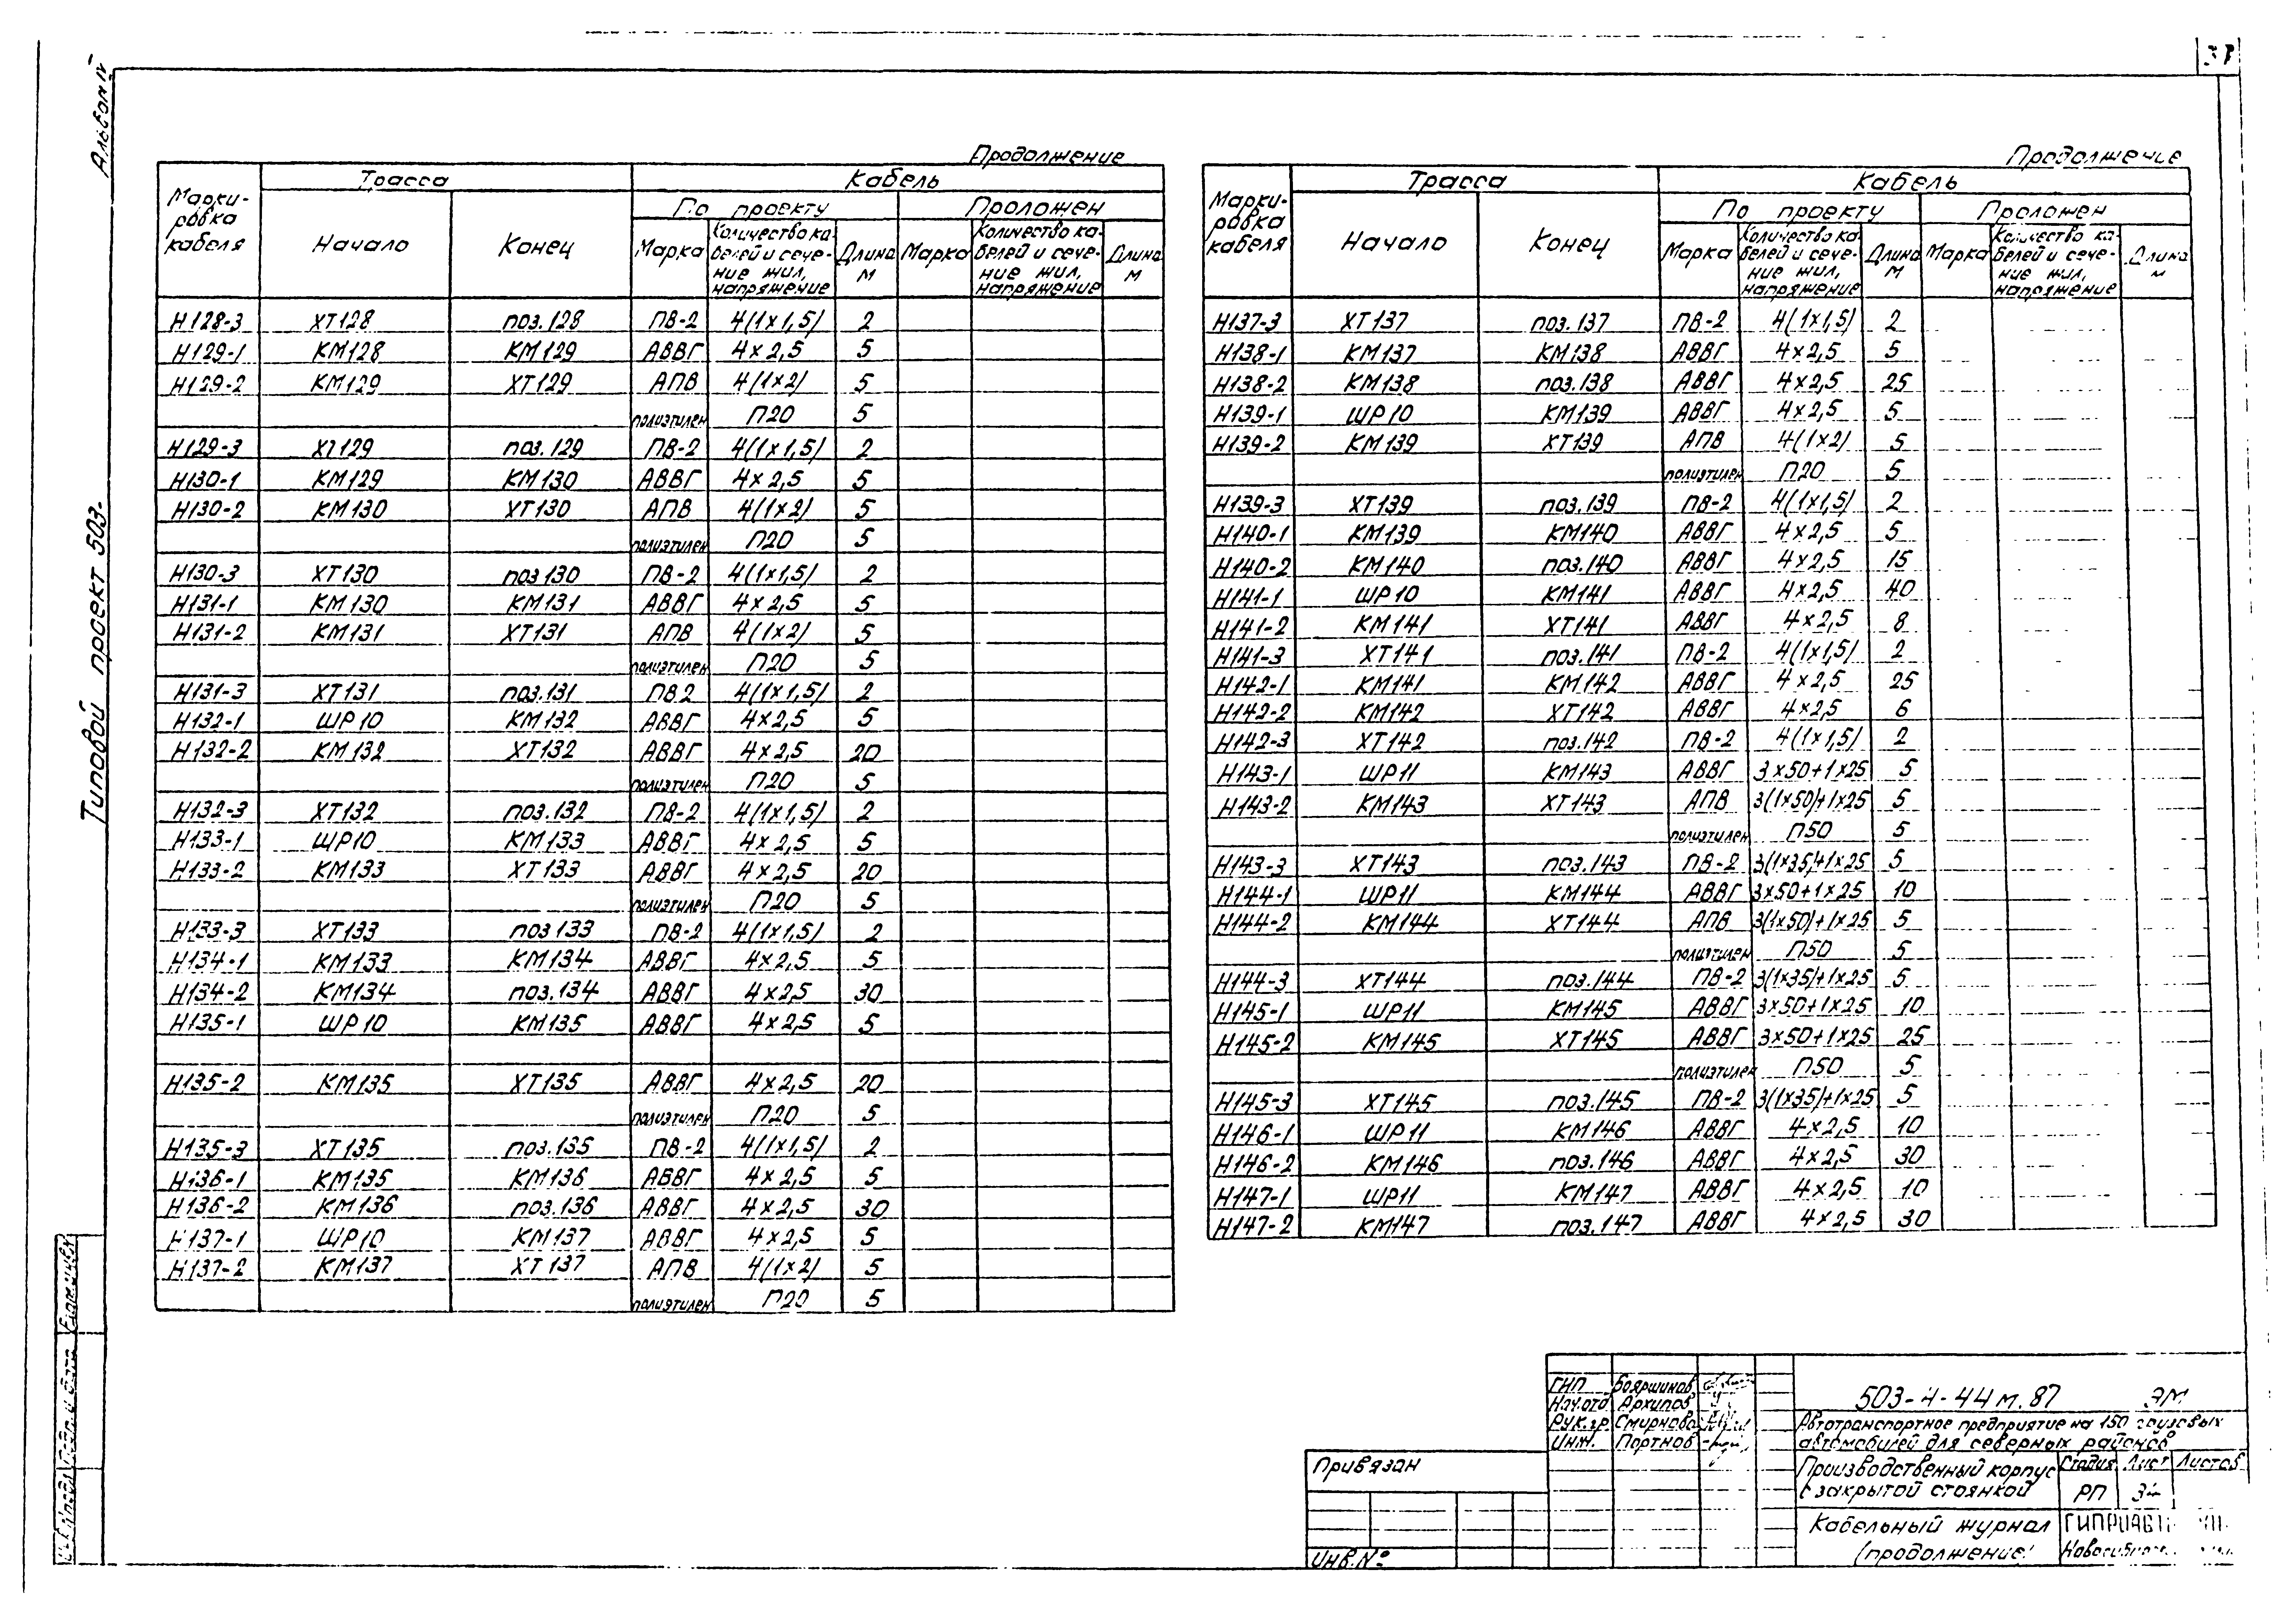 Альбом IV
Типовой проект 503-
Продолжение
Марки-ровка кабеля | Трасса | Кабель
По проекту | Проложен
Начало | Конец | Марка | Количество ка-белей и сече-ние жил, напряжение | Длина м | Марка | Количество ка-белей и сече-ние жил, напряжение | Длина м
Н128-3 ХТ128 поз.128 ПВ-2 4(1х1,5) 2
Н129-1 КМ128 КМ129 АВВГ 4х2,5 5
Н129-2 КМ129 ХТ129 АПВ 4(1х2) 5
полиэтилен П20 5
Н129-3 ХТ129 поз.129 ПВ-2 4(1х1,5) 2
Н130-1 КМ129 КМ130 АВВГ 4х2,5 5
Н130-2 КМ130 ХТ130 АПВ 4(1х2) 5
полиэтилен П20 5
Н130-3 ХТ130 поз130 ПВ-2 4(1х1,5) 2
Н131-1 КМ130 КМ131 АВВГ 4х2,5 5
Н131-2 КМ131 ХТ131 АПВ 4(1х2) 5
полиэтилен П20 5
Н131-3 ХТ131 поз.131 ПВ2 4(1х1,5) 2
Н132-1 ШР10 КМ132 АВВГ 4х2,5 5
Н132-2 КМ132 ХТ132 АВВГ 4х2,5 20
полиэтилен П20 5
Н132-3 ХТ132 поз.132 ПВ-2 4(1х1,5) 2
Н133-1 ШР10 КМ133 АВВГ 4х2,5 5
Н133-2 КМ133 ХТ133 АВВГ 4х2,5 20
полиэтилен П20 5
Н133-3 ХТ133 поз133 ПВ-2 4(1х1,5) 2
Н134-1 КМ133 КМ134 АВВГ 4х2,5 5
Н134-2 КМ134 поз.134 АВВГ 4х2,5 30
Н135-1 ШР10 КМ135 АВВГ 4х2,5 5
Н135-2 КМ135 ХТ135 АВВГ 4х2,5 20
полиэтилен П20 5
Н135-3 ХТ135 поз.135 ПВ-2 4(1х1,5) 2
Н136-1 КМ135 КМ136 АВВГ 4х2,5 5
Н136-2 КМ136 поз.136 АВВГ 4х2,5 30
Н137-1 ШР10 КМ137 АВВГ 4х2,5 5
Н137-2 КМ137 ХТ137 АПВ 4(1х2) 5
полиэтилен П20 5
Продолжение
Марки-ровка кабеля | Трасса | Кабель
По проекту | Проложен
Начало | Конец | Марка | Количество ка-белей и сече-ние жил, напряжение | Длина м | Марка | Количество ка-белей и сече-ние жил, напряжение | Длина м
Н137-3 ХТ137 поз.137 ПВ-2 4(1х1,5) 2
Н138-1 КМ137 КМ138 АВВГ 4х2,5 5
Н138-2 КМ138 поз.138 АВВГ 4х2,5 25
Н139-1 ШР10 КМ139 АВВГ 4х2,5 5
Н139-2 КМ139 ХТ139 АПВ 4(1х2) 5
полиэтилен П20 5
Н139-3 ХТ139 поз.139 ПВ-2 4(1х1,5) 2
Н140-1 КМ139 КМ140 АВВГ 4х2,5 5
Н140-2 КМ140 поз.140 АВВГ 4х2,5 15
Н141-1 ШР10 КМ141 АВВГ 4х2,5 40
Н141-2 КМ141 ХТ141 АВВГ 4х2,5 8
Н141-3 ХТ141 поз.141 ПВ-2 4(1х1,5) 2
Н142-1 КМ141 КМ142 АВВГ 4х2,5 25
Н142-2 КМ142 ХТ142 АВВГ 4х2,5 6
Н142-3 ХТ142 поз.142 ПВ-2 4(1х1,5) 2
Н143-1 ШР11 КМ143 АВВГ 3х50+1х25 5
Н143-2 КМ143 ХТ143 АПВ 3(1х50)+1х25 5
полиэтилен П50 5
Н143-3 ХТ143 поз.143 ПВ-2 3(1х35)+1х25 5
Н144-1 ШР11 КМ144 АВВГ 3х50+1х25 10
Н144-2 КМ144 ХТ144 АПВ 3(1х50)+1х25 5
полиэтилен П50 5
Н144-3 ХТ144 поз.144 ПВ-2 3(1х35)+1х25 5
Н145-1 ШР11 КМ145 АВВГ 3х50+1х25 10
Н145-2 КМ145 ХТ145 АВВГ 3х50+1х25 25
полиэтилен П50 5
Н145-3 ХТ145 поз.145 ПВ-2 3(1х35)+1х25 5
Н146-1 ШР11 КМ146 АВВГ 4х2,5 10
Н146-2 КМ146 поз.146 АВВГ 4х2,5 30
Н147-1 ШР11 КМ147 АВВГ 4х2,5 10
Н147-2 КМ147 поз.147 АВВГ 4х2,5 30
ГИП Бояршинов
Нач.отд Архипов
Рук.гр. Смирнова
Инж. Портнов
503-4-44м.87 ЭМ
Автотранспортное предприятие на 150 грузовых
автомобилей для северных районов
Производственный корпус
с закрытой стоянкой
Стадия Лист Листов
РП
Кабельный журнал
(продолжение)
Привязан
Инв.№